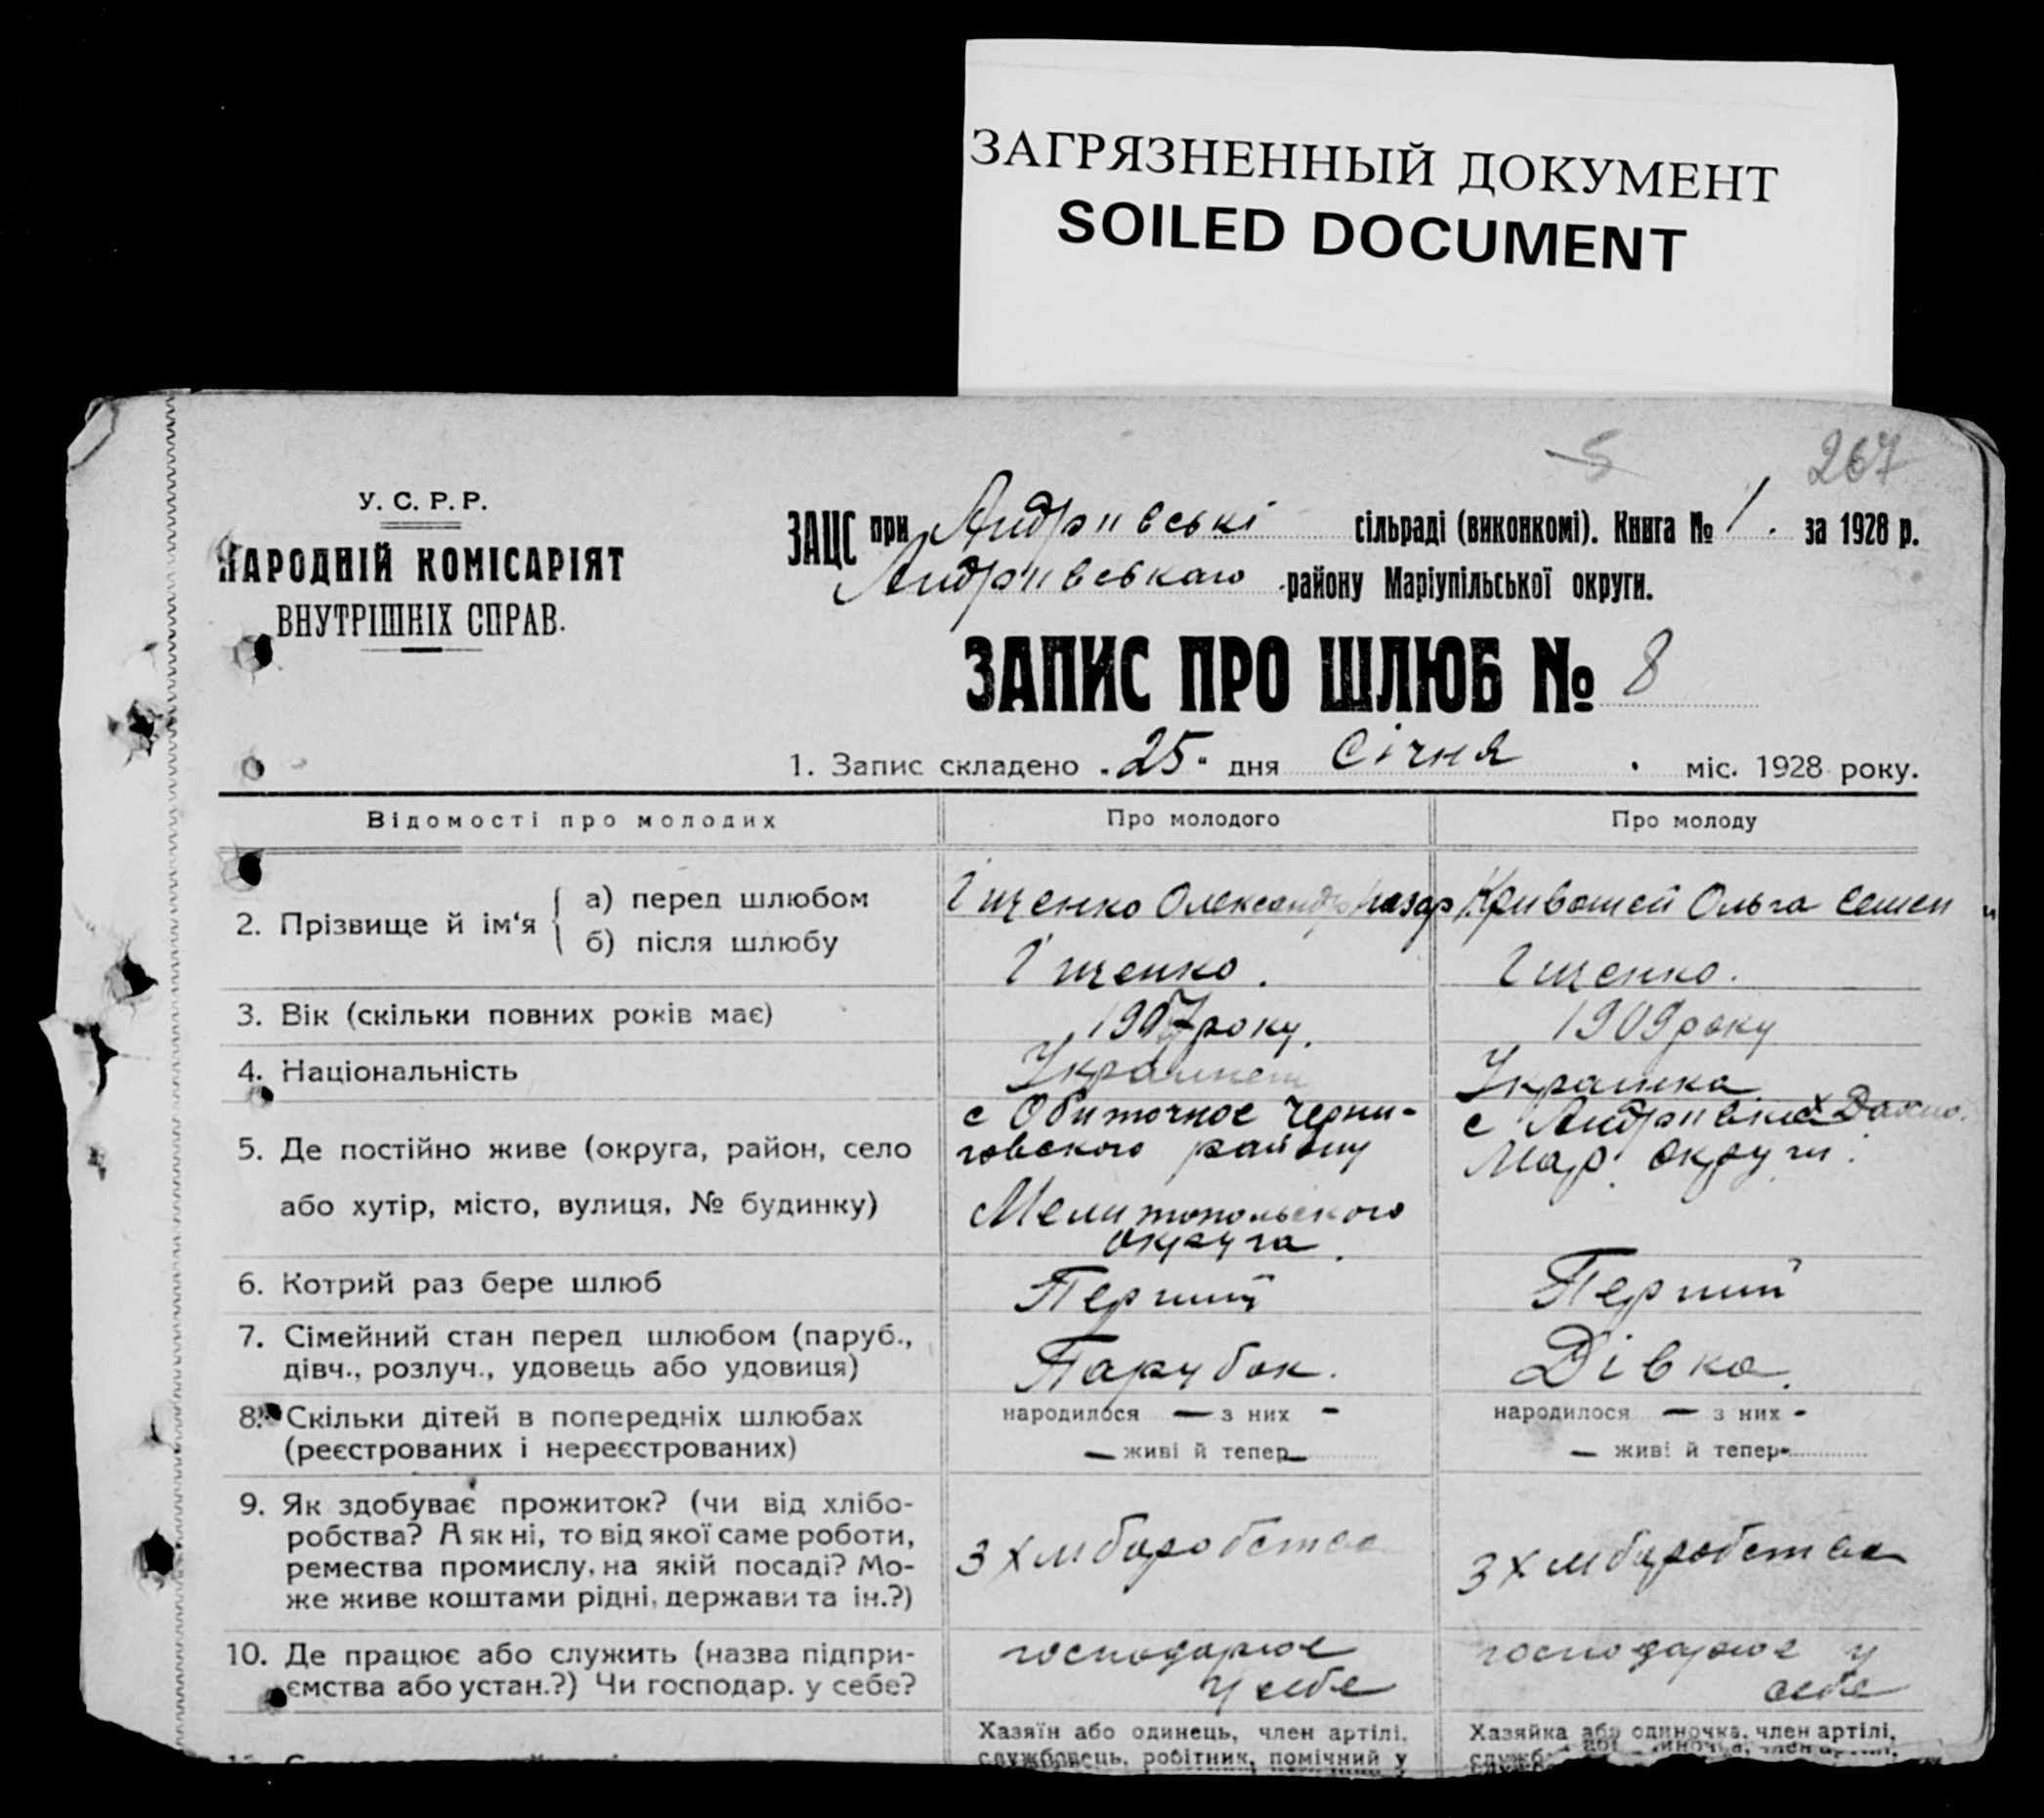 ЗАГРЯЗНЕННЫЙ ДОКУМЕНТ
SOILED DOCUMENT
5
267
У. С. Р. Р.
НАРОДНІЙ КОМІСАРІЯТ
ВНУТРІШНІХ СПРАВ.
ЗАЦС при Андріївські сільраді (виконкомі). Книга № 1. за 1928 р.
Андріївського району Маріупільської округи.
ЗАПИС ПРО ШЛЮБ № 8
1. Запис складено „25" дня Січня міс. 1928 року.
Відомості про молодих
Про молодого
Про молоду
2. Прізвище й ім'я
а) перед шлюбом
б) після шлюбу
Іщенко Олександр Назар
Кривошей Ольга Семен
Іщенко.
Іщенко.
3. Вік (скільки повних років має)
1907 року.
1909 року
4. Національність
Українец
Украінка
5. Де постійно живе (округа, район, село
або хутір, місто, вулиця, № будинку)
с Обиточное Черни-
говского району
Мелитопольського
округа.
с Андріївка
Мар. округи.
6. Котрий раз бере шлюб
Перший
Перший
7. Сімейний стан перед шлюбом (паруб.,
дівч., розлуч., удовець або удовиця)
Парубок.
Дівка.
8. Скільки дітей в попередніх шлюбах
(реєстрованих і нереєстрованих)
народилося — з них -
— живі й тепер —
народилося — з них -
— живі й тепер -
9. Як здобуває прожиток? (чи від хлібо-
робства? А як ні, то від якої саме роботи,
ремества промислу, на якій посаді? Мо-
же живе коштами рідні, держави та ін.?)
З хліборобства
З хліборобства
10. Де працює або служить (назва підпри-
ємства або устан.?) Чи господар. у себе?
господарює
у себе
господарює у
себе
Хазяїн або одинець, член артілі,
службовець, робітник, помічний у
Хазяйка або одиночка, член артілі,